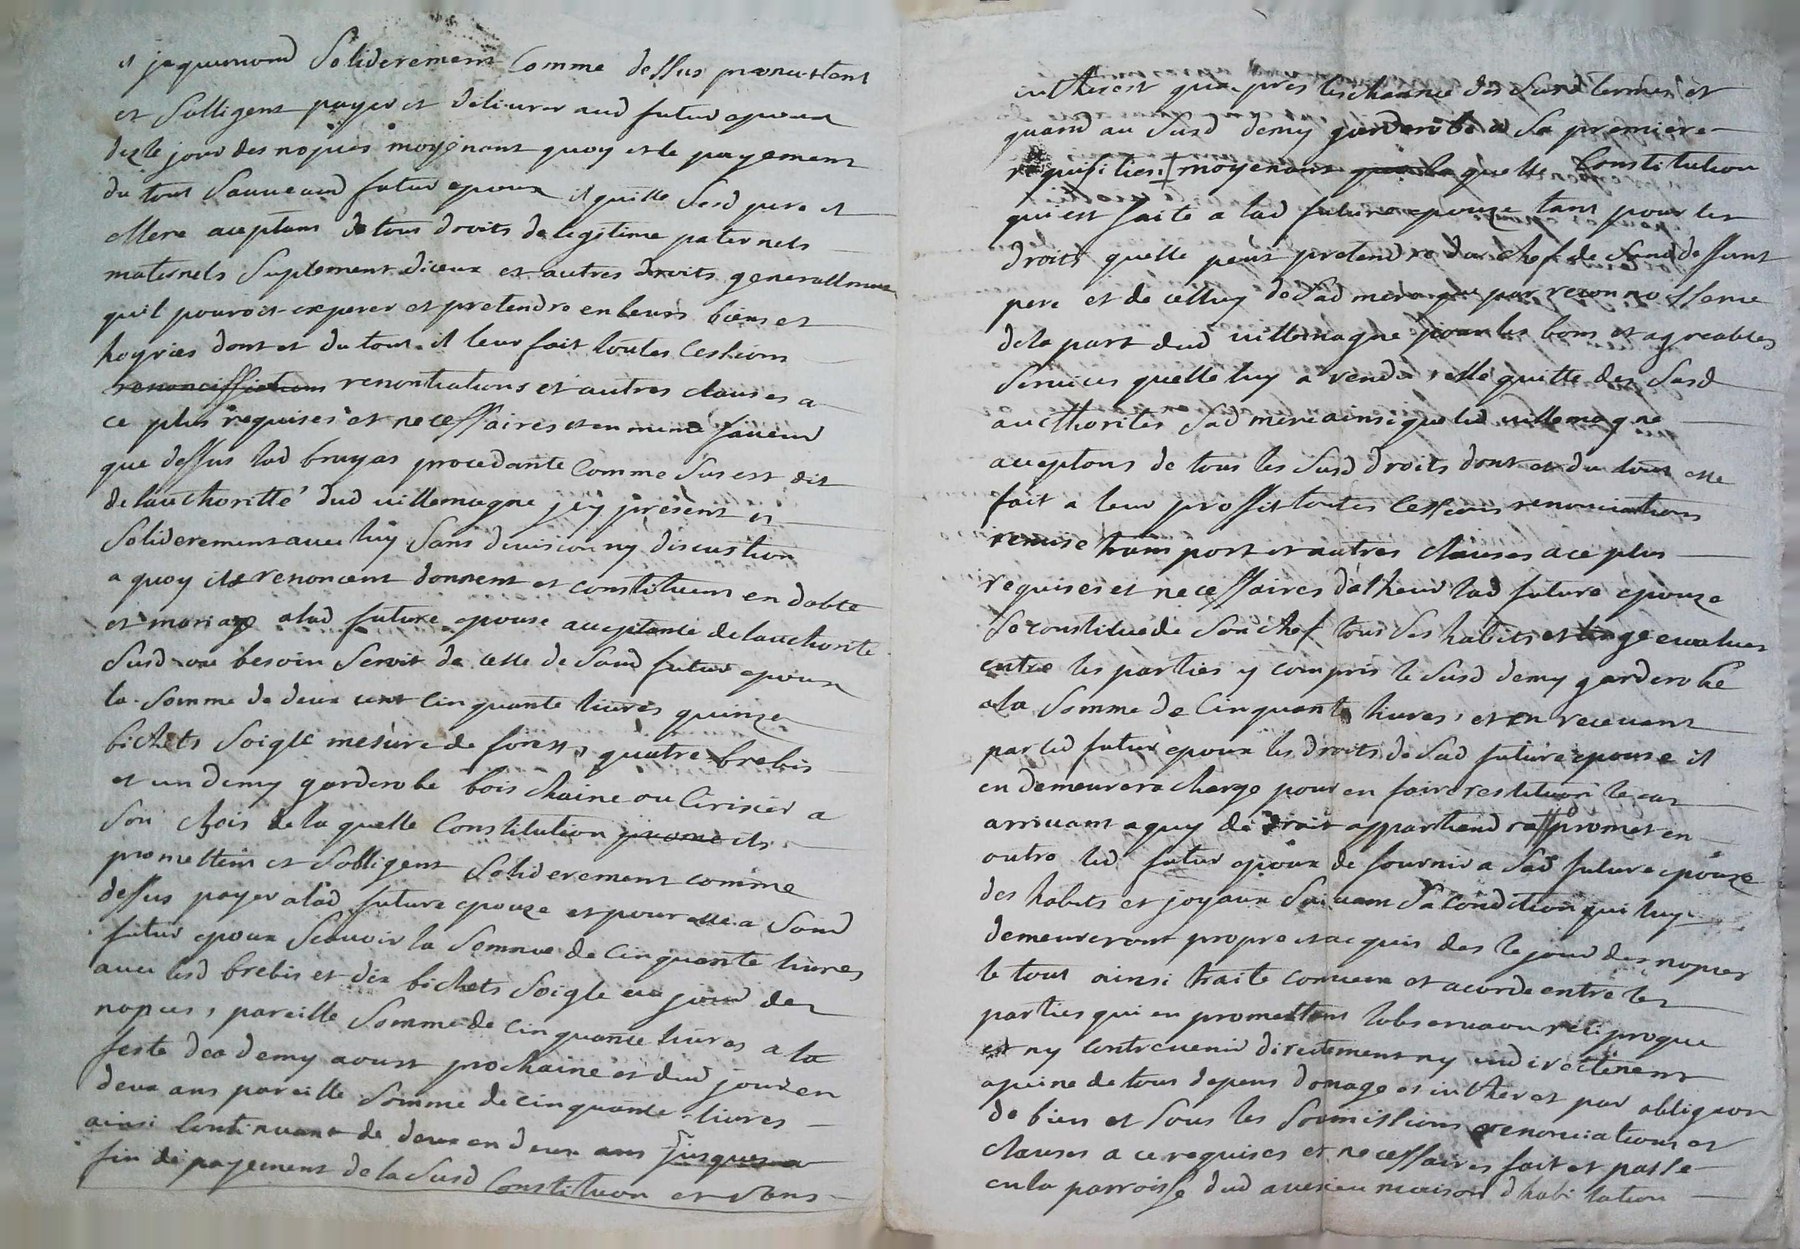 solideremens comme dessus promettent
et sobligent payer et deliurer aud futur epoux
dez le jour des nopces moyenant quoy et le payement
du tout aud futur epoux il quitte sesd pere et
Mere aceptans de tous droits de legitime paternels
maternels suplement diceux et autres droits generallmen
quil pouroit esperer et pretendre en leurs biens et
hoyries dont et du tout il leur fait toutes cessions
renontiations et autres clauses a
ce plus requises et necessaires et en meme faveur
que dessus lad bruyas procedante comme sus est dit
de lauthoritté dud uillemagne icy présent et
soliderement auec luy sans diuision ny discution
a quoy ils renoncent donnent et constituent en dotte
et mariage a lad future epouse aceptante de lauthorite
susd ou besoin seroit de celle de sond futur epoux
la somme de deux cent cinquante liures quinze
bichets soigle mesure de forest, quatre brebis
et un demy garderobe bois chaine ou cirisier a
son chois de la quelle constitution ils
promettent et sobligent soliderement comme
dessus payer a lad future epouze et pour elle a sond
futur epoux scauoir la somme de cinquante liures
auec lesd brebis et dix bichets soigle au jour des
nopces, pareille somme de cinquante liures a la
feste de demy aoust prochaine et dud jour en
deux ans pareille somme de cinquante liures
ainsi continuant de deux en deux ans jusques a
fin de payement de la susd constitution et sans
intherest quapres lescheance des susd termes et
quand au susd demy garderobe a sa premiere
requisition moyenant la quelle constitution
qui est faite a lad future epouze tant pour les
droits quelle peut pretendre du chef de sond deffunt
pere et de celluy de sad mere que par reconnoissence
de la part dud uillemagne pour les bons et agreables
seruices quelle luy a rendu, elle quitte des susd
authorités sad mere ainsi que led uillemagne
aceptans de tous les susd droits dont et du tout elle
fait a leur proffit toutes cessions renonciations
remise transport et autres clauses a ce plus
requises et necessaires dalheur lad future epouze
se constitue de son chef tous ses habits et linge eualues
entre les parties y compris le susd demy garderobe
a la somme de cinquante liures, et en receuant
par led futur epoux les droits de sad future epouse il
en demeurera charge pour en faire restitution le cas
arriuant a quy de droit appartiendra promet en
outre led futur epoux de fournir a sad future epouze
des habits et joyaux suiuant sa condition qui luy
demeureront propre et acquis des le jour des nopces
le tout ainsi traite conuenu et acorde entre les
parties qui en promettent lobseruaon reciproque
et ny contreuenir directement ny indirectement
a peine de tous depens domage et intherest par obligaon
de bien et sous les soumissions renonciations et
clauses a ce requises et necessaires fait et passe
en la parroisse dud maison dhabitation